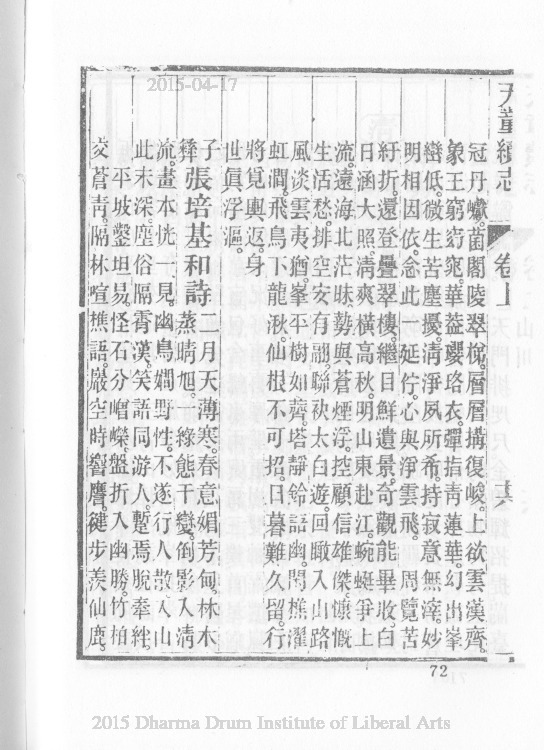 2015-04-17
天童續志 卷上
冠丹蠍菌閣陵翠棁層層搆復峻上欲雲漢齊
象王窮窈窕華葢瓔珞衣彈指靑蓮華幻出峯
巒低微生苦塵擾淸淨夙所希持寂意無滓妙
明相因依念此一延佇心與淨雲飛 周覽苦
紆折還登疊翠樓繼目鮮遺景奇觀能畢收白
日涵大照淸爽橫高秋明山東赴江蜿蜒爭上
流遠海北茫昧勢與蒼煙浮控顧信雄傑慷慨
生活愁排空安有翮聯袂太白遊回瞰入山路
風淡雲夷猶峯平樹如薺塔靜鈴語幽閒樵濯
虹澗飛鳥下龍湫仙根不可招日暮難久留行
將覓輿返身
世眞浮漚
子
彝張培基和詩 二月天薄寒春意媚芳甸林木
蒸晴旭一綠態千變倒影入淸
流畫本恍一見幽鳥嫺野性不遂行人散入山
此未深塵俗隔霄漢笑語同游人蹔焉脫牽絆
平坡鑿坦易怪石分嶒嶸盤折入幽勝竹柏
交蒼靑隔林喧樵語巖空時響鷹徒步羨仙鹿
72
2015 Dharma Drum Institute of Liberal Arts